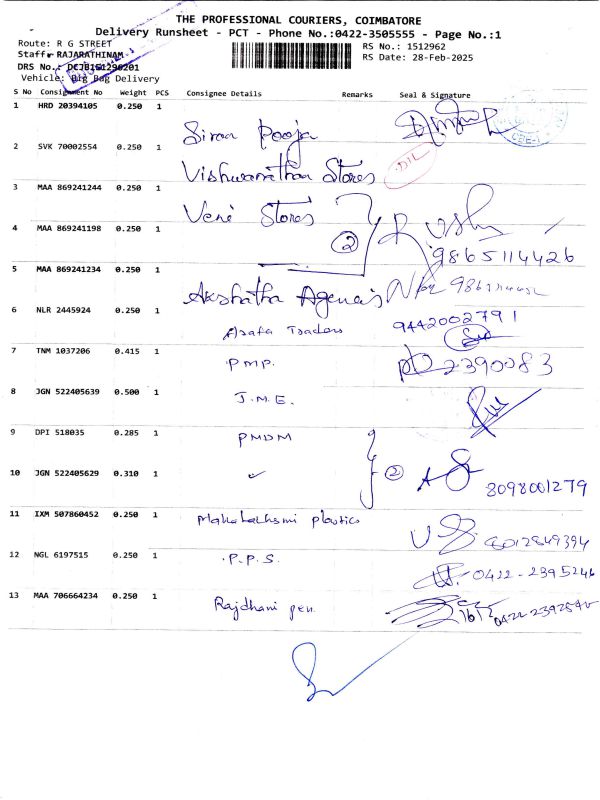 THE PROFESSIONAL COURIERS, COIMBATORE
Delivery Runsheet - PCT - Phone No.:0422-3505555 - Page No.:1
Route: R G STREET
RS No.: 1512962
Staff: RAJARATHINAM
RS Date: 28-Feb-2025
DRS No.:
Vehicle: Big Bag Delivery
S No Consignment No Weight PCS Consignee Details Remarks Seal & Signature
1 HRD 20394105 0.250 1
Pooja
2 SVK 70002554 0.250 1
Vishwanathan Stores
DIL
3 MAA 869241244 0.250 1
Veni Stores
4 MAA 869241198 0.250 1
2
9865114426
5 MAA 869241234 0.250 1
Akshatha Agencies
6 NLR 2445924 0.250 1
Traders 9442002791
7 TNM 1037206 0.415 1
PMP. 2390083
8 JGN 522405639 0.500 1
J.M.E.
9 DPI 518035 0.285 1
PMDM
10 JGN 522405629 0.310 1
✓ 2
8098001279
11 IXM 507860452 0.250 1
Mahalakhsmi plastics
12 NGL 6197515 0.250 1
P.P.S.
0422-2395246
13 MAA 706664234 0.250 1
Rajdhani pen